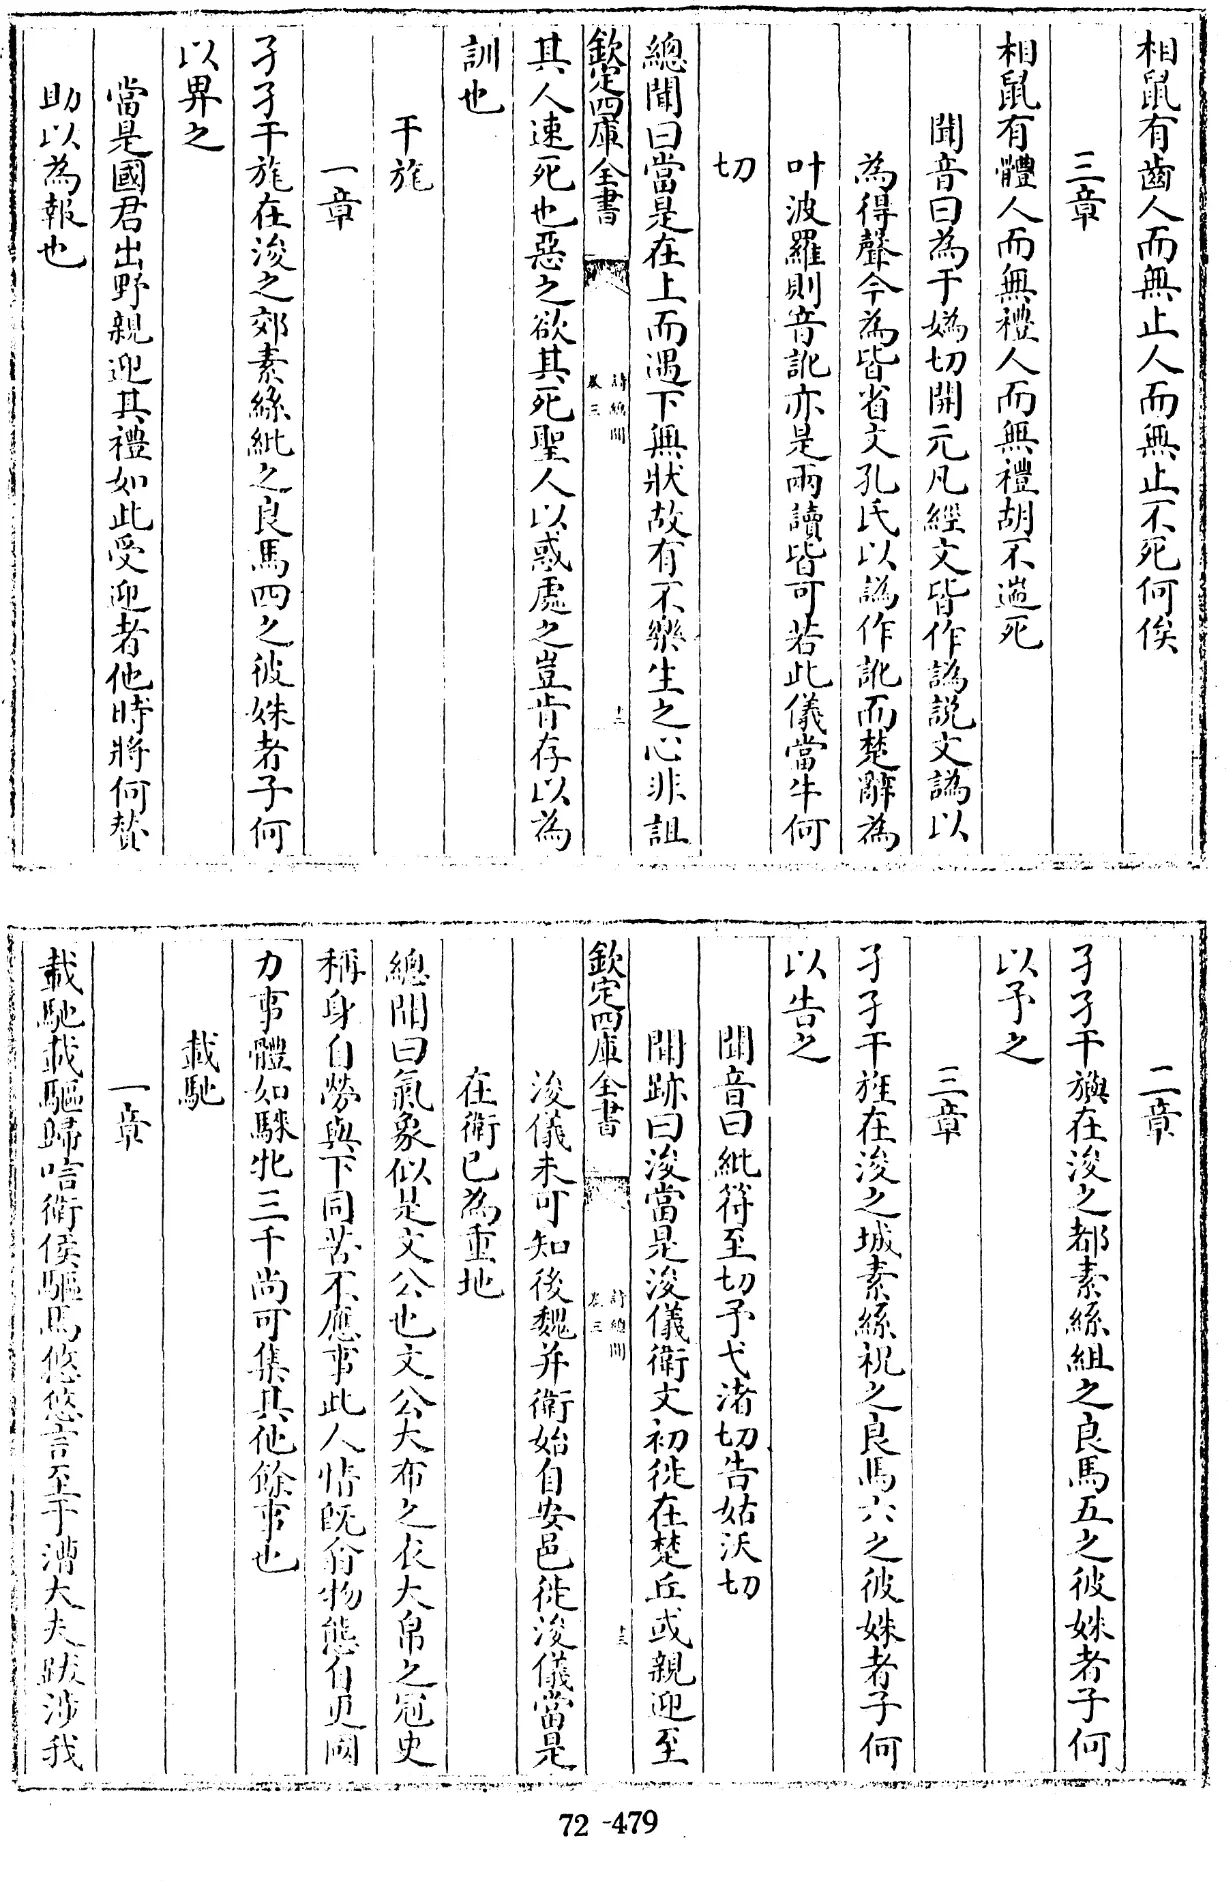 相鼠有齒人而無止人而無止不死何俟
三章
相鼠有體人而無禮人而無禮胡不遄死
聞音曰為于嬀切開元凡經文皆作譌説文譌以
為得聲今為皆省文孔氏以譌作訛而楚辭為
叶波羅則音訛亦是兩讀皆可若此儀當牛何
切
總聞曰當是在上而遇下無狀故有不樂生之心非詛
欽定四庫全書
詩總聞
卷三
十二
其人速死也惡之欲其死聖人以惑處之豈肯存以為
訓也
干旄
一章
孑孑干旄在浚之郊素絲紕之良馬四之彼姝者子何
以畀之
當是國君出野親迎其禮如此受迎者他時將何贊
助以為報也
二章
孑孑干旟在浚之都素絲組之良馬五之彼姝者子何
以予之
三章
孑孑干旌在浚之城素絲祝之良馬六之彼姝者子何
以告之
聞音曰紕符至切予弋渚切告姑沃切
聞跡曰浚當是浚儀衛文初徙在楚丘或親迎至
欽定四庫全書
詩總聞
卷三
十三
浚儀未可知後魏并衛始自安邑徙浚儀當是
在衛已為重地
總聞曰氣象似是文公也文公大布之衣大帛之冠史
稱身自勞與下同苦不應事此人情既翕物態自更國
力事體如騋牝三千尚可集其他餘事也
載馳
一章
載馳載驅歸唁衛侯驅馬悠悠言至于漕大夫跋涉我
72-479